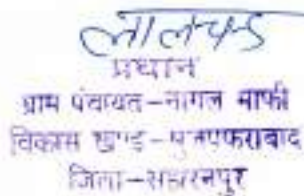 लालचन्द
प्रधान
ग्राम पंचायत-नागल माफी
विकास खण्ड-मुजफ्फराबाद
जिला-सहारनपुर